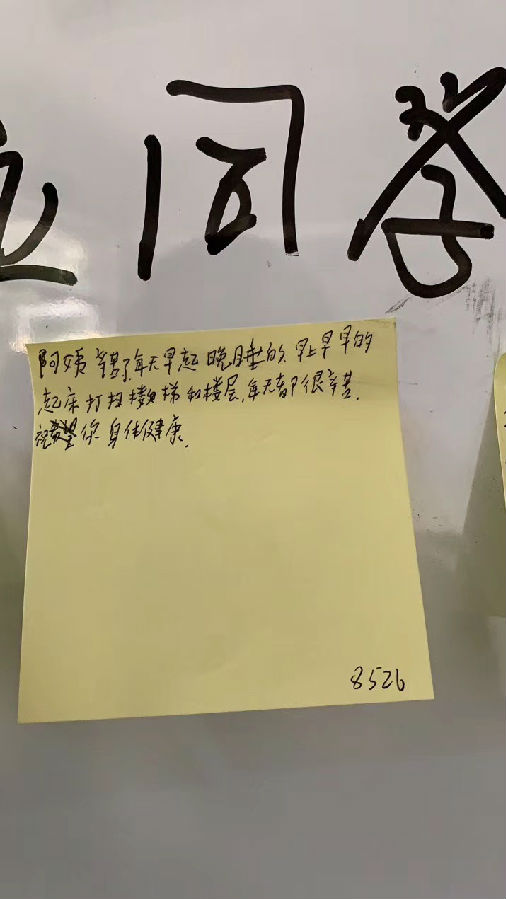 同学
阿姨辛苦了,每天早起晚睡的,早上早早的
起床打扫楼梯和楼层,每天都很辛苦.
祝你身体健康.
8526